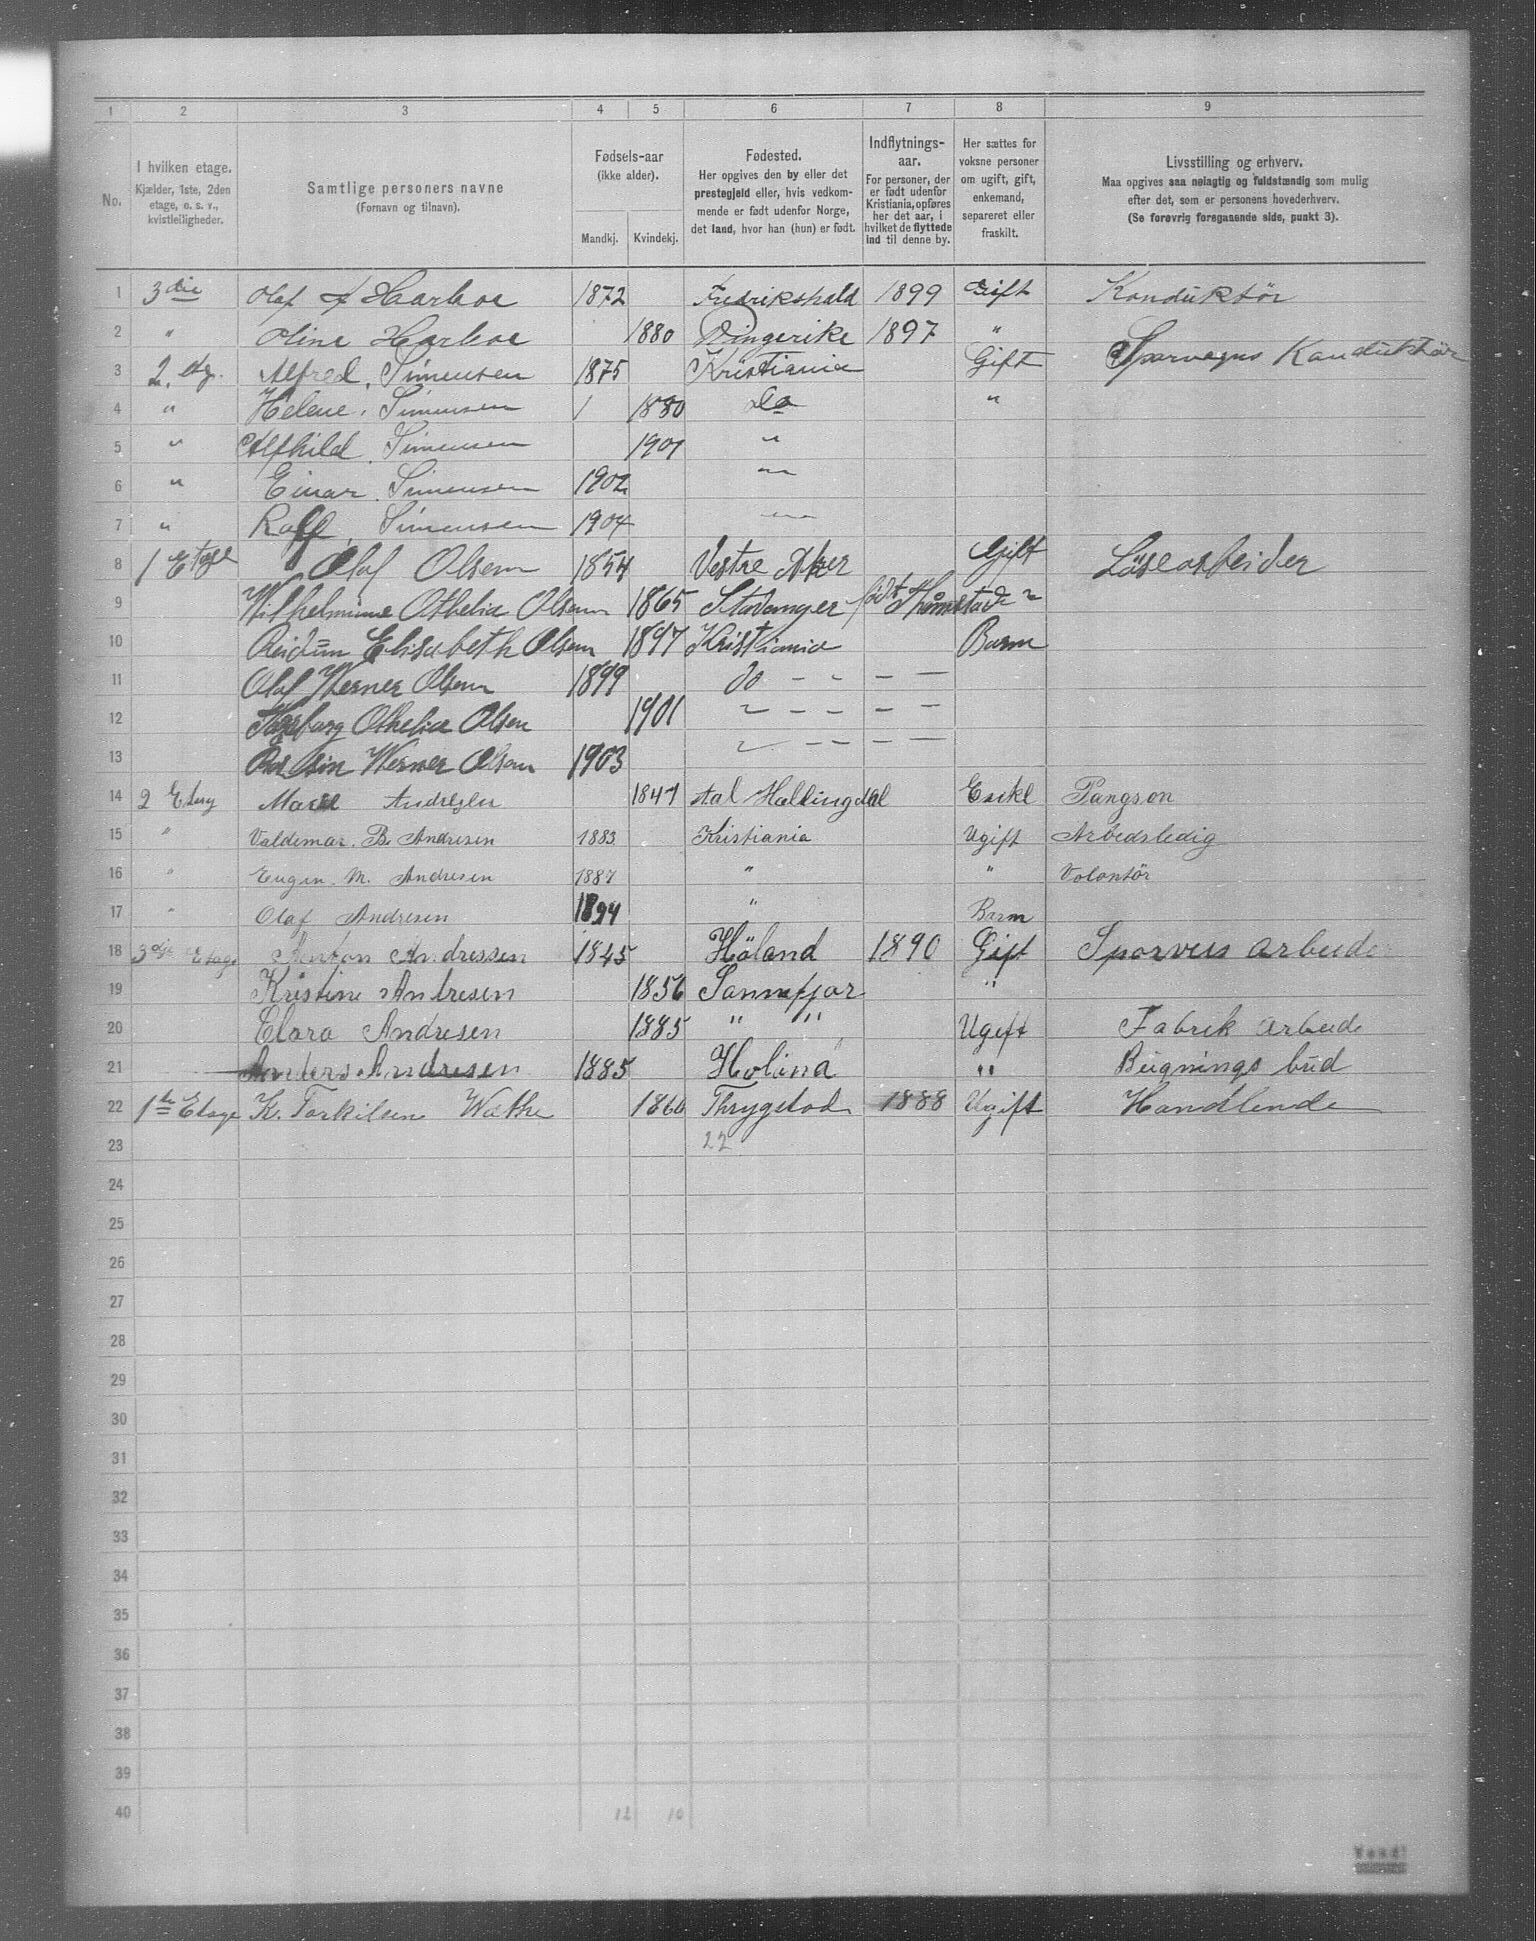 1 2 3 4 5 6 7 8 9
No.
I hvilken etage.
Kjælder, 1ste, 2den
etage, o. s. v.,
kvistleiligheder.
Samtlige personers navne
(Fornavn og tilnavn).
Fødsels-aar
(ikke alder).
Mandkj. Kvindekj.
Fødested.
Her opgives den by eller det
prestegjeld eller, hvis vedkom-
mende er født udenfor Norge,
det land, hvor han (hun) er født.
Indflytnings-
aar.
For personer, der
er født udenfor
Kristiania, opføres
her det aar, i
hvilket de flyttede
ind til denne by.
Her sættes for
voksne personer
om ugift, gift,
enkemand,
separeret eller
fraskilt.
Livsstilling og erhverv.
Maa opgives saa nøiagtig og fuldstændig som mulig
efter det, som er personens hovederhverv.
(Se forøvrig foregaaende side, punkt 3).
1 3die Olaf A Harboe 1872 Fredrikshald 1899 Gift Konduktör
2 " Oline Harboe 1880 Ringerike 1897 "
3 2. etg. Alfred. Simensen 1875 Kristiania Gift Sporvegns Konduktør
4 " Helene. Simensen 1880 do "
5 " Alfhild. Simensen 1901 "
6 " Einar. Simensen 1902 "
7 " Rolf. Simensen 1904 "
8 1 Etage Olaf Olsen 1854 Vestre Aker Gift Lösearbeider
9 Wilhelmine Othelia Olsen 1865 Stavanger født "
10 Reidun Elisabeth Olsen 1897 Kristiania Barn
11 Olaf Werner Olsen 1899 do - - - -
12 Othelia Olsen 1901 " - - - -
13 Werner Olsen 1903 " - - - -
14 2 Etag Marie Andresen 1847 Aal Hallingdal Enke Pangson
15 " Valdemar. B. Andresen 1883 Kristiania Ugift Arbedsledig
16 " Eugen. M. Andresen 1887 " " Volontør
17 " Olaf Andresen 1894 " Barn
18 3die Etage Anton Andressen 1845 Höland 1890 Gift Sporveis arbeider
19 Kristine Andresen 1856 Sannefjor "
20 Clara Andresen 1885 " " Ugift Fabrik arbeide
21 Anders Andresen 1885 Holand " Bugnings bud
22 1ste Etage K. Torkilsen Wathe 1860 Thrygstad 1888 Ugift Handlende
23 22
24
25
26
27
28
29
30
31
32
33
34
35
36
37
38
39
40 12 10
Vend!